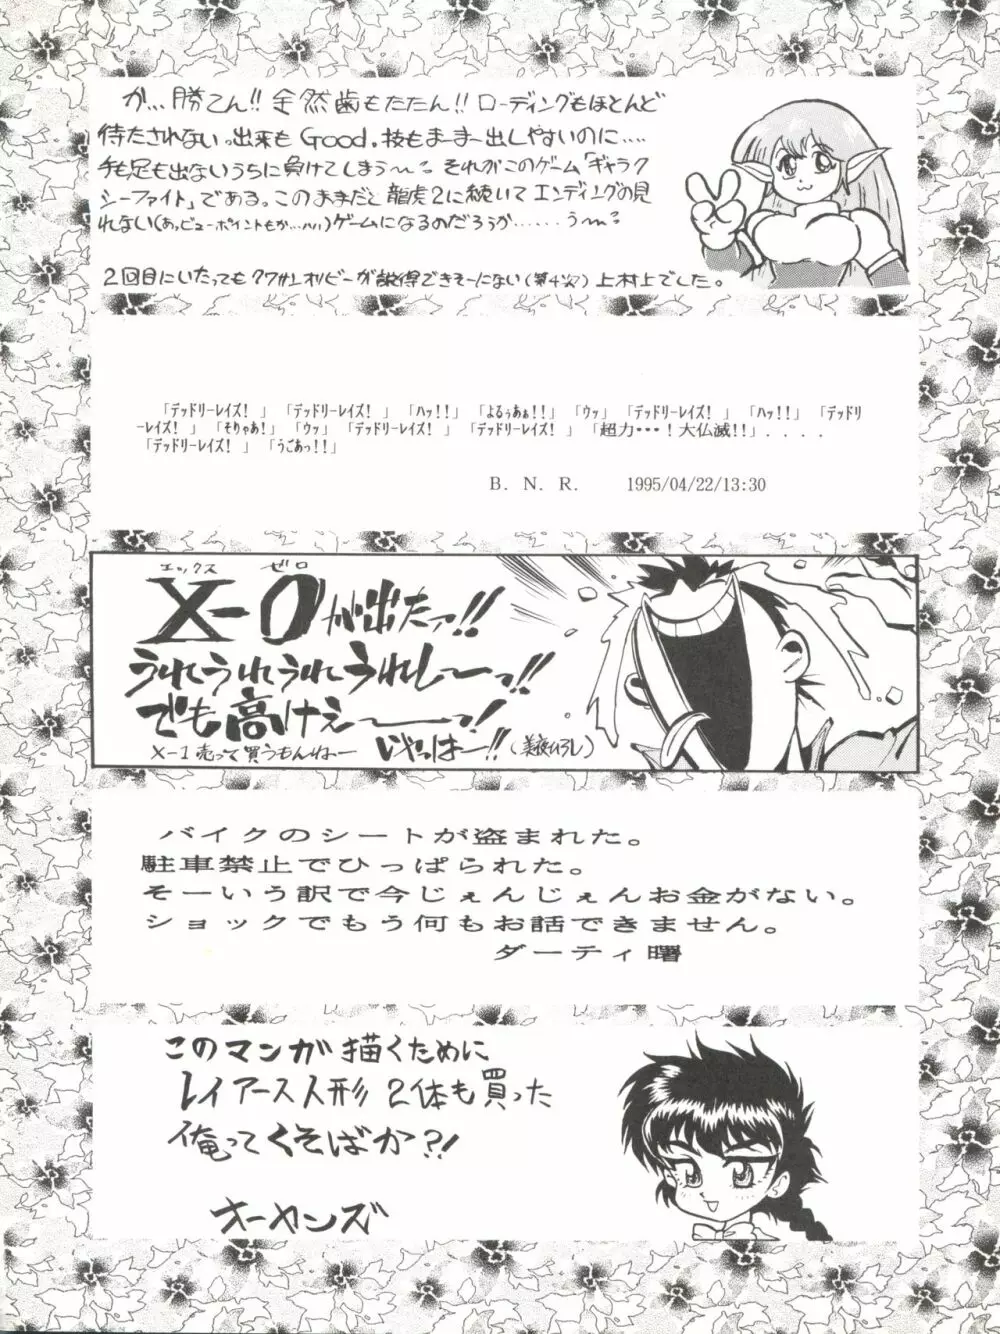 か…勝てん!! 全然歯もたたん!! ローディングもほとんど
待たされないっ出来もGood.技もまーまー出しやすいのに….
手も足も出ないうちに負けてしまう〜。それがこのゲーム「ギャラク
シーファイト」である。このままだと龍虎2に続いてエンディングの見
れない(あッビューポイントもか…ハハ)ゲームになるのだろうか……. う〜。
2回目にいたってもクワサンオリビーが説得できそーにない(第4次) 上村上でした。
「デッドリーレイズ!」「デッドリーレイズ!」「ハッ!!」「よるぅあぁ!!」「ウッ」「デッドリーレイズ!」「ハッ!!」「デッドリ
ーレイズ!」「そりゃあ!」「ウッ」「デッドリーレイズ!」「デッドリーレイズ!」「超力・・・!大仏滅!!」....
「デッドリーレイズ!」「うごあっ!!」
B. N. R. 1995/04/22/13:30
エックス ゼロ
X-0が出たァ!!
うれうれうれうれし〜っ!!
でも高けぇ〜っ!
X-1売って買うもんねー いやっはー!!
バイクのシートが盗まれた。
駐車禁止でひっぱられた。
そーいう訳で今じぇんじぇんお金がない。
ショックでもう何もお話できません。
ダーティ曙
このマンガ描くために
レイアース人形2体も買った
俺ってくそばか?!
オーカンズ